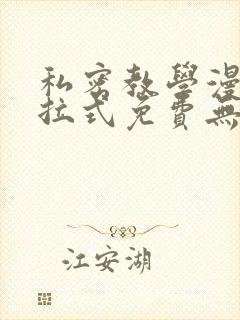 私密教學漫
拉式免費無
江安湖